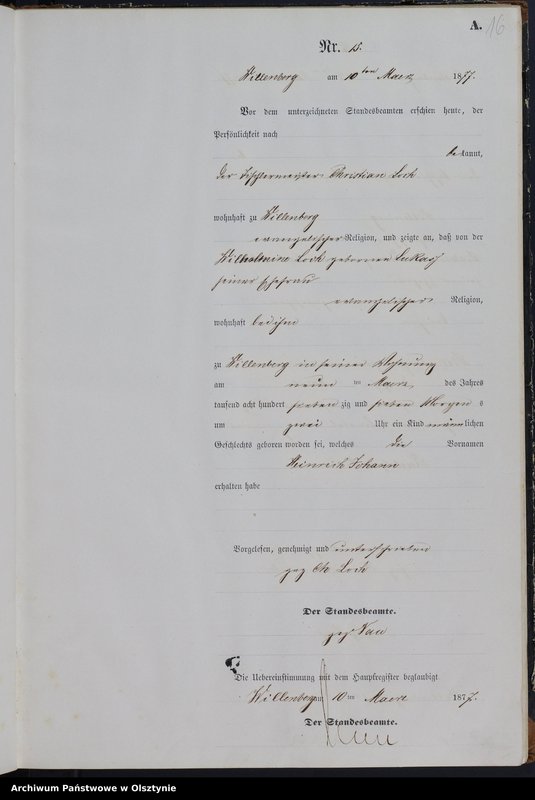 A.
16
Nr. 15.
Willenberg am 10 ten Maerz 1877.
Vor dem unterzeichneten Standesbeamten erschien heute, der
Persönlichkeit nach
bekannt,
der Tischlermeister Christian Lock
wohnhaft zu Willenberg
evangelischer Religion, und zeigte an, daß von der
Wilhelmine Lock geborenen Lukas
seiner Ehefrau
evangelischer Religion,
wohnhaft bei ihm
zu Willenberg in seiner Wohnung
am neun ten Maerz, des Jahres
tausend acht hundert sieben zig und sieben Morgen s
um zwei Uhr ein Kind männlichen
Geschlechts geboren worden sei, welches die Vornamen
Heinrich Johann
erhalten habe
Vorgelesen, genehmigt und unterschrieben
gez Ch Lock
Der Standesbeamte.
gez
Die Uebereinstimmung mit dem Hauptregister beglaubigt
Willenberg am 10 ten Maerz 1877.
Der Standesbeamte.
Archiwum Państwowe w Olsztynie